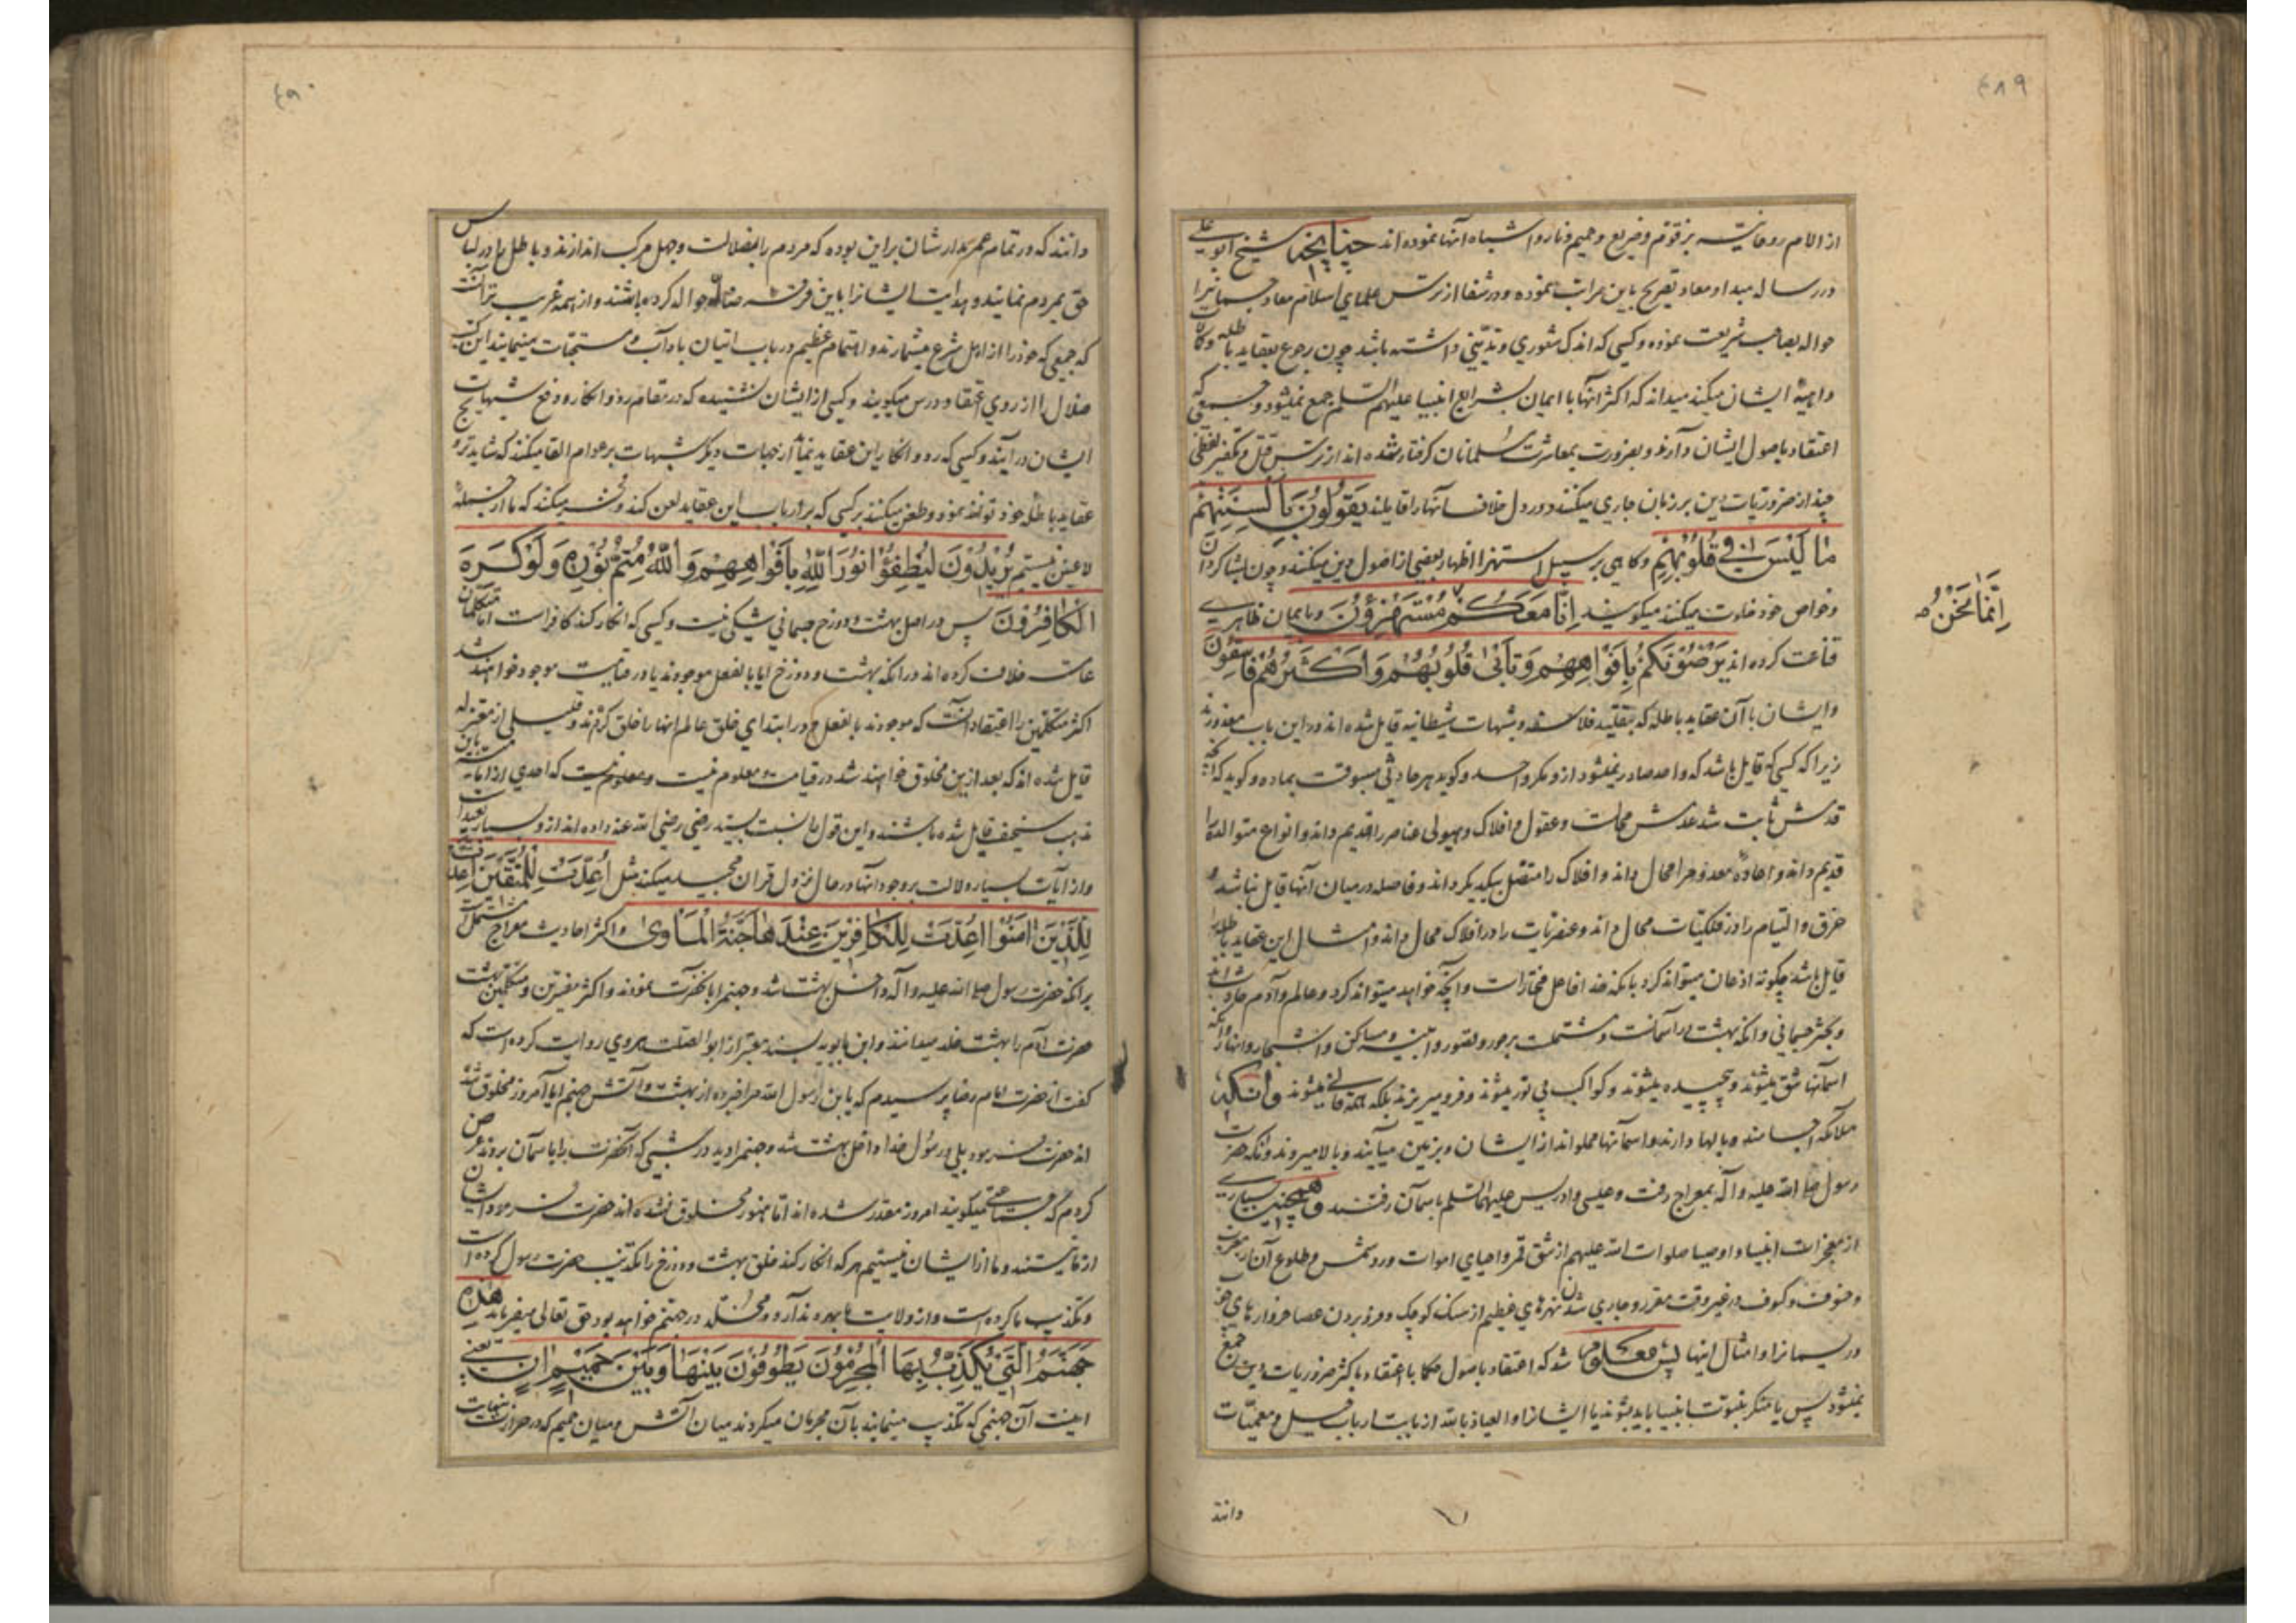 ٤٨٩
از الام روحانیه بر زقوم و ضریع و حمیم و نار و اشباه آنها نموده‌اند چنانچه شیخ ابو علی
در رساله مبدا و معاد تصریح باین مراتب نموده و در شفا از ترس علمای اسلام معاد جسمانیرا
حواله بصاحب شریعت نموده و کسی که اندک شعوری و تدینی داشته باشد چون رجوع بعقاید باطله و کلمات
واهیهٔ ایشان میکند میداند که اکثر آنها با ایمان بشرایع انبیا علیهم السلم جمع نمیشود و جمعی که
اعتقاد باصول ایشان دارند و بضرورت بمعاشرت مسلمانان گرفتار شده‌اند از ترس قتل و تکفیر لفظی
چند از ضروریات دین بر زبان جاری میکنند و در دل خلاف آنها را قایلند یَقُولُونَ بِاَلْسِنَتِهِمْ
مٰا لَیْسَ فِی قُلُوبِهِمْ و کاهی بر سبیل استهزا اظهار بعضی از اصول دین میکنند و چون بشاکردان
و خواص خود خلوت میکنند میکویند اِنّٰا مَعَکُمْ مُسْتَهْزِؤُنَ و بایمان ظاهری
اِنَّمٰا نَحْنُ
قناعت کرده‌اند یَرْضُوْنَکُمْ بِاَفْوٰاهِهِمْ وَ تَاْبٰی قُلُوبُهُمْ وَ اَکْثَرُهُمْ فٰاسِقُونَ
و ایشان با آن عقاید باطله که بتقلید فلاسفه و شبهات شیطانیه قایل شده‌اند در این باب معذورند
زیرا که کسی که قایل باشد که واحد صادر نمیشود از او مکر واحد و کوید هر حادثی مسبوقست بماده و کوید که آنچه
قدمش ثابت شد عدمش محالست و عقول و افلاک و هیولی عناصر را قدیم داند و انواع متوالده را
قدیم داند و اعادهٔ معدوم را محال داند و افلاک را متصل بیکدیکر داند و فاصله در میان آنها قایل نباشد و
خرق و التیام را در فلکیات محال داند و عنصریات را در افلاک محال داند و امثال این عقاید باطله را
قایل باشد چکونه اذعان میتواند کرد بانکه خدا فاعل مختار است و آنچه خواهد میتواند کرد و عالم و آدم حادث‌اند
و بحشر جسمانی و آنکه بهشت در آسمانست و مشتملست بر حور و قصور و ابنیه و مساکن و اشجار و انهار و آنکه
آسمانها شق میشوند و پیچیده میشوند و کواکب بی نور میشوند و فرو میریزند بلکه همه فانی میشوند و آنکه
ملائکه اجسامند و بالها دارند و آسمانها مملواند از ایشان و بزمین میآیند و بالا میروند و آنکه حضرت
رسول صلی الله علیه و آله بمعراج رفت و عیسی و ادریس علیهما السلم باسمان رفتند و همچنین بسیاری
از معجزات انبیا و اوصیا صلوات الله علیهم از شق قمر و احیای اموات و رد شمس و طلوع آن از مغرب
و خسوف و کسوف در غیر وقت مقرر و جاری شدن نهرهای عظیم از سنک کوچک و فرو بردن عصا خروارهای چوب
و ریسمانرا و امثال اینها پس معلوم شد که اعتقاد باصول حکما با اعتقاد باکثر ضروریات دین جمع
نمیشود پس یا منکر نبوت انبیا باید بشوند یا ایشانرا و العیاذ بالله از بابت ارباب حیل و معمیات
دانند
٤٩٠
دانند که در تمام عمر مدارشان براین بوده که مردم را بضلالت و جهل مرکب اندازند و باطل را در لباس
حق بمردم نمایند و هدایت ایشانرا باین فرقه ضاله حواله کرده باشند و از همه غریب تر آنست
که جمعی که خود را از اهل شرع میشمارند و اهتمام عظیم در باب اتیان بآداب و مستحبات مینمایند این کتب
ضلال را از روی اعتقاد درس میکویند و کسی از ایشان نشنیده که در مقام رد و انکار و دفع شبهات
ایشان درآیند و کسی که رد و انکار این عقاید نماید از جهات دیکر شبهات بر عوام القا میکنند که شاید ترویج
عقاید باطل خود توانند نمود و طعن میکنند بر کسی که بر ارباب این عقاید لعن کند و فخر میکنند که ما از جمله
لاعنین نیستیم یُرِیدُونَ لِیُطْفِؤُا نُورَ اللّٰهِ بِاَفْوٰاهِهِمْ وَ اللّٰهُ مُتِمُّ نُورِهِ وَ لَوْ کَرِهَ
الْکٰافِرُونَ پس در اصل بهشت و دوزخ جسمانی شکی نیست و کسی که انکار کند کافر است اما متکلمان
عامه خلاف کرده‌اند در انکه بهشت و دوزخ ایا بالفعل موجودند یا در قیامت موجود خواهند شد
اکثر متکلمین را اعتقاد آنست که موجودند بالفعل و در ابتدای خلق عالم انها را خلق کردند و قلیلی از معتزله
قایل شده‌اند که بعد ازین مخلوق خواهند شد در قیامت و معلوم نیست که احدی از امامیه باین
مذهب سخیف قایل شده باشند و این قول را نسبت بسید رضی رضی الله عنه داده‌اند از او بسیار بعید است
و از آیات بسیار دلالت بر وجود آنها در حال نزول قران مجید میکند مثل اُعِدَّتْ لِلْمُتَّقِینَ اُعِدَّتْ
لِلَّذِینَ اٰمَنُوا اُعِدَّتْ لِلْکٰافِرِینَ عِنْدَهٰا جَنَّةُ الْمَاْوٰی و اکثر احادیث معراج مشتملست
برانکه حضرت رسول صلی الله علیه و آله داخل بهشت شد و جهنم را بانحضرت نمودند و اکثر مفسرین و متکلمین بهشت
حضرت آدم را بهشت خلد میدانند و ابن بابویه بسند معتبر از ابو الصلت هروی روایت کرده است که
کفت از حضرت امام رضا پرسیدم که یا بن رسول الله مرا خبر ده از بهشت و آتش جهنم ایا امروز مخلوق شده
اند حضرت فرمود بلی و رسول خدا داخل بهشت شد و جهنم را دید در شبی که آنحضرت را باسمان بردند عرض
کردم که جماعتی میکویند امروز مقدر شده‌اند اما هنوز مخلوق نشده‌اند حضرت فرمود ایشان
از ما نیستند و ما از ایشان نیستیم هر که انکار کند خلق بهشت و دوزخ را تکذیب حضرت رسول کرده است
و تکذیب ما کرده است و از ولایت ما بهره ندارد و مخلد در جهنم خواهد بود حق تعالی میفرماید هٰذِهِ
جَهَنَّمُ الَّتِی یُکَذِّبُ بِهَا الْمُجْرِمُونَ یَطُوفُونَ بَیْنَهٰا وَ بَیْنَ حَمِیمٍ اٰنٍ یعنی
اینست آن جهنمی که تکذیب مینمایند بآن مجرمان میکردند میان آتش و میان حمیم که در حرارت بنهایت